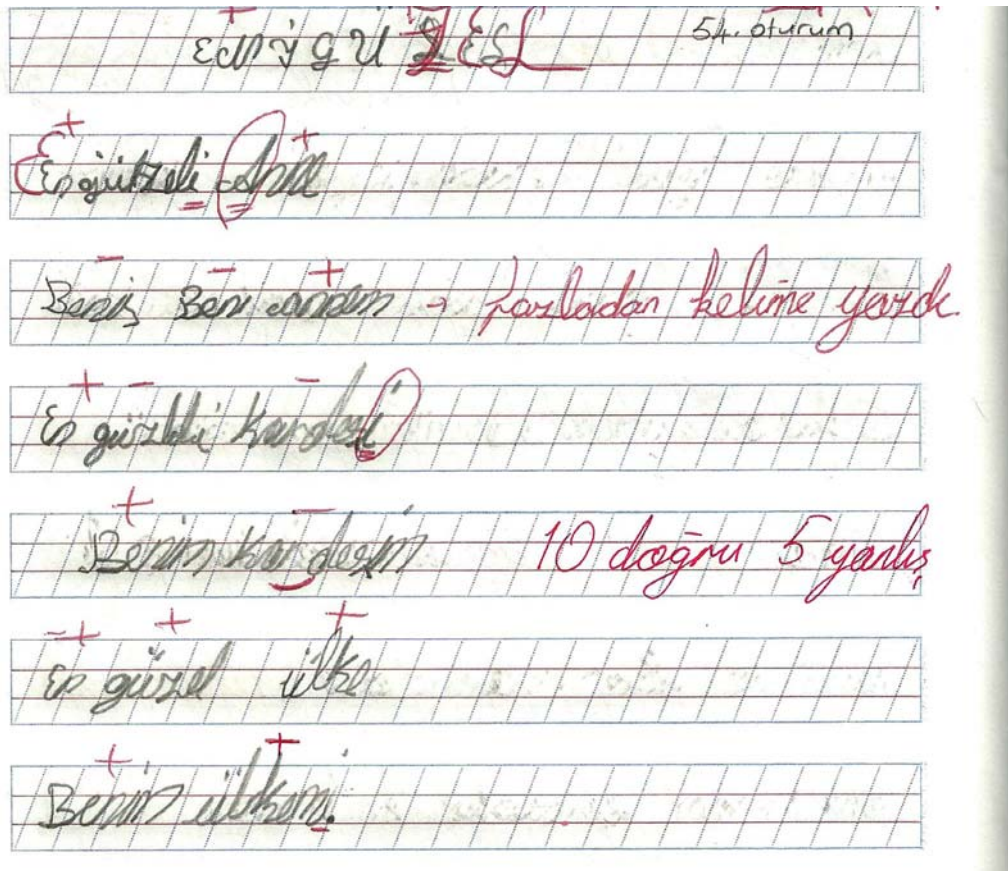 54. oturum
En güzeli anne
Beniş Beni annem → fazladan kelime yazdı.
En güzeli kardeşi
Benim kardeşim 10 doğru 5 yanlış
En güzel ülke
Benim ülkem.